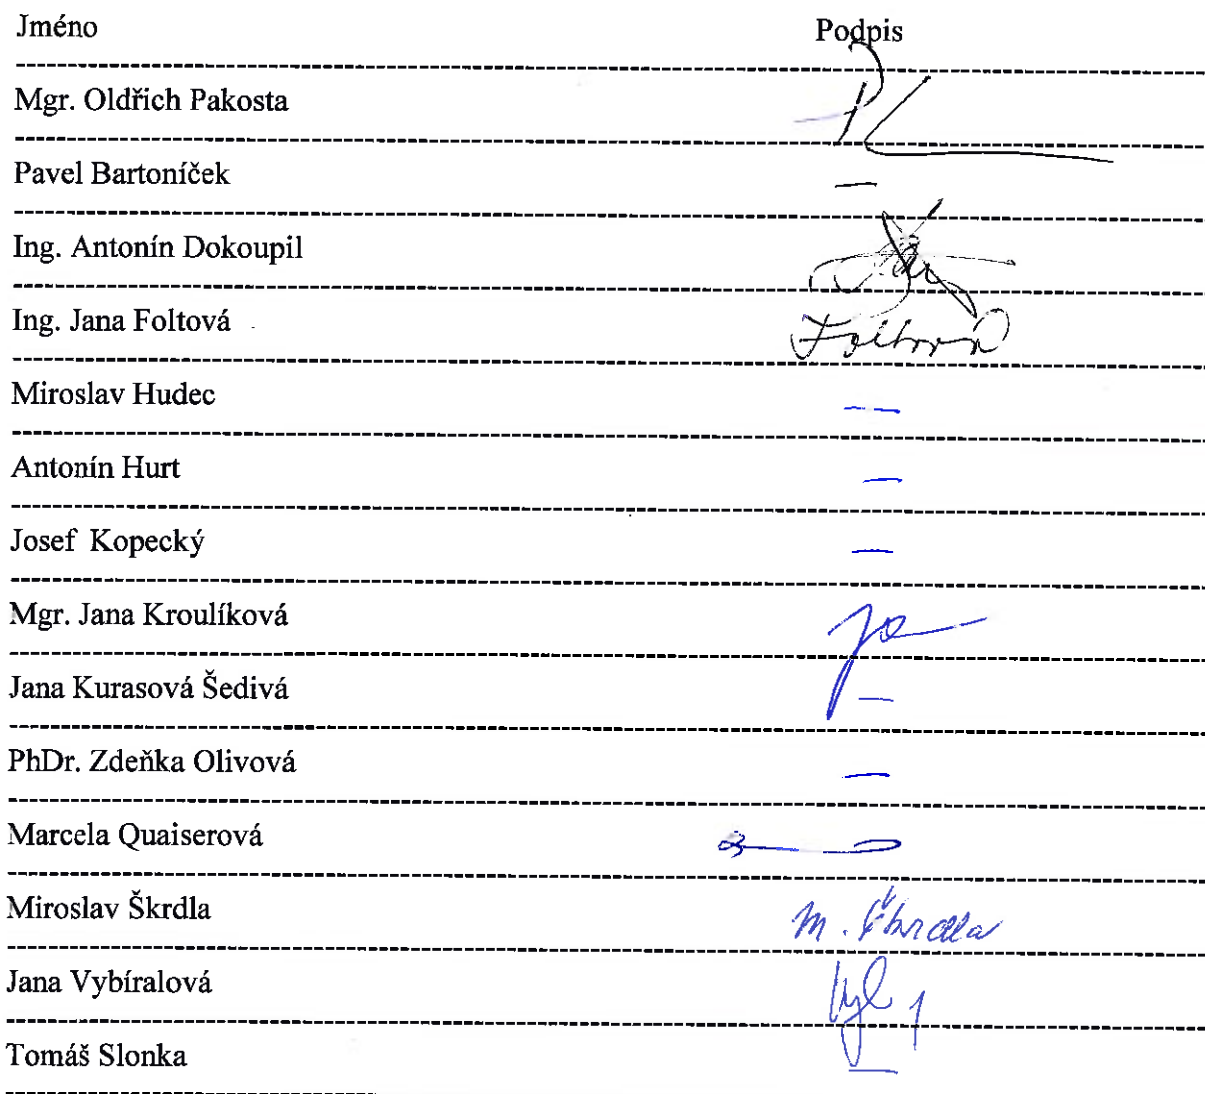 Jméno Podpis
Mgr. Oldřich Pakosta
Pavel Bartoníček —
Ing. Antonín Dokoupil
Ing. Jana Foltová Foltová
Miroslav Hudec —
Antonín Hurt —
Josef Kopecký —
Mgr. Jana Kroulíková
Jana Kurasová Šedivá —
PhDr. Zdeňka Olivová —
Marcela Quaiserová
Miroslav Škrdla M. Škrdla
Jana Vybíralová
Tomáš Slonka —